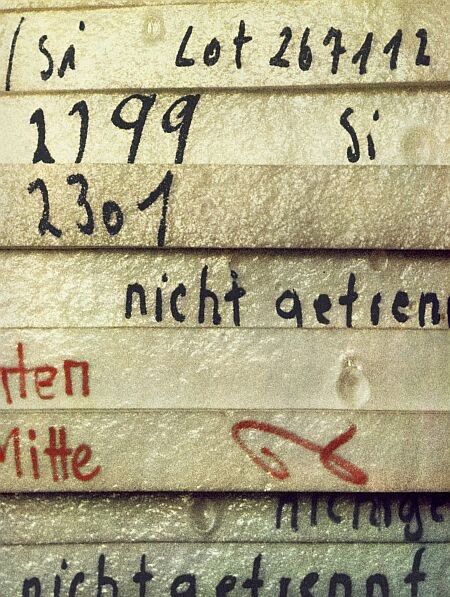 / Si Lot 267112
2799 Si
2301
nicht getrenn
rten
Mitte
nicht getrennt